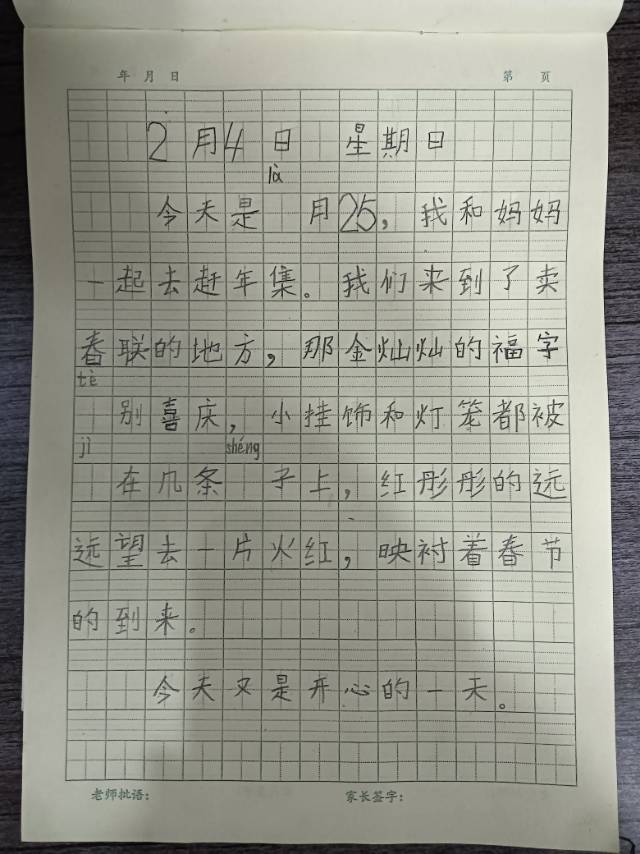 年 月 日 第 页
2月4日 星期日
là
今天是 月25，我和妈妈
一起去赶年集。我们来到了卖
春联的地方，那金灿灿的福字
tè
别喜庆，小挂饰和灯笼都被
jì shéng
在几条 子上，红彤彤的远
远望去一片火红，映衬着春节
的到来。
今天又是开心的一天。
老师批语： 家长签字：